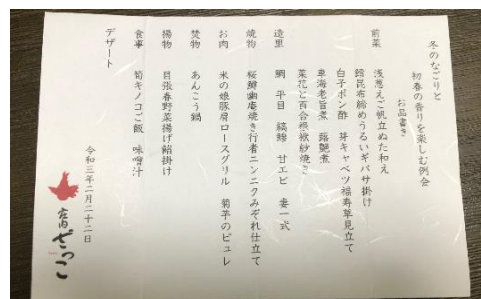 冬のなごりと
初春の香りを楽しむ例会
お品書き
前菜 浅葱えご帆立ぬた和え
鱈昆布締めうるいギバサ掛け
白子ポン酢 芽キャベツ福寿草見立て
車海老旨煮 蕗艶煮
菜花と百合根袱紗焼き
造里 鯛 平目 縞鯵 甘エビ 妻一式
焼物 桜鱒幽庵焼き行者ニンニクみぞれ仕立て
お肉 米の娘豚肩ロースグリル 菊芋のピュレ
焚物 あんこう鍋
揚物 目張春野菜揚げ餡掛け
食事 筍キノコご飯 味噌汁
デザート
令和三年二月二十二日
庄内ざっこ